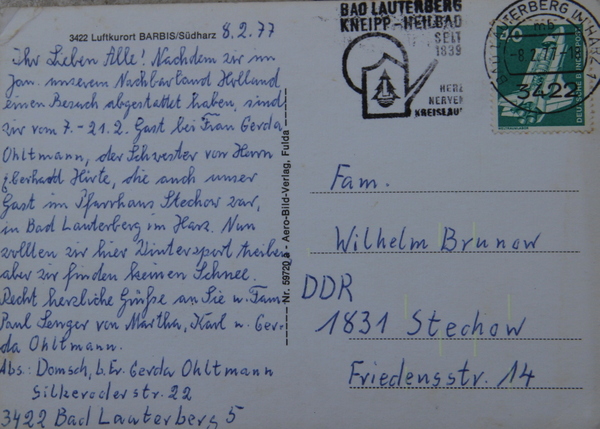 3422 Luftkurort BARBIS/Südharz
8.2.77
Ihr Lieben Alle! Nachdem wir im
Jan. unserem Nachbarland Holland
einen Besuch abgestattet haben, sind
wir vom 7.-21.2. Gast bei Frau Gerda
Ohltmann, der Schwester von Herrn
Hirte, die auch unser
Gast im Pfarrhaus Stechow war,
in Bad Lauterberg im Harz. Nun
wollten wir hier Wintersport treiben
aber wir finden keinen Schnee.
Recht herzliche Grüße an Sie u. Fam.
Paul Senger von Martha, Karl u. Ger-
da Ohltmann.
Abs.: Domsch, b. Fr. Gerda Ohltmann
Silkeroderstr. 22
3422 Bad Lauterberg 5
Nr. 59720 - Aero-Bild-Verlag, Fulda
BAD LAUTERBERG
KNEIPP-HEILBAD
SEIT
1839
HERZ
NERVEN
KREISLAUF
LAUTERBERG IM HARZ 1
mb
-8.2.77
3422
DEUTSCHE BUNDESPOST
Fam.
Wilhelm Brunow
DDR
1831 Stechow
Friedensstr. 14